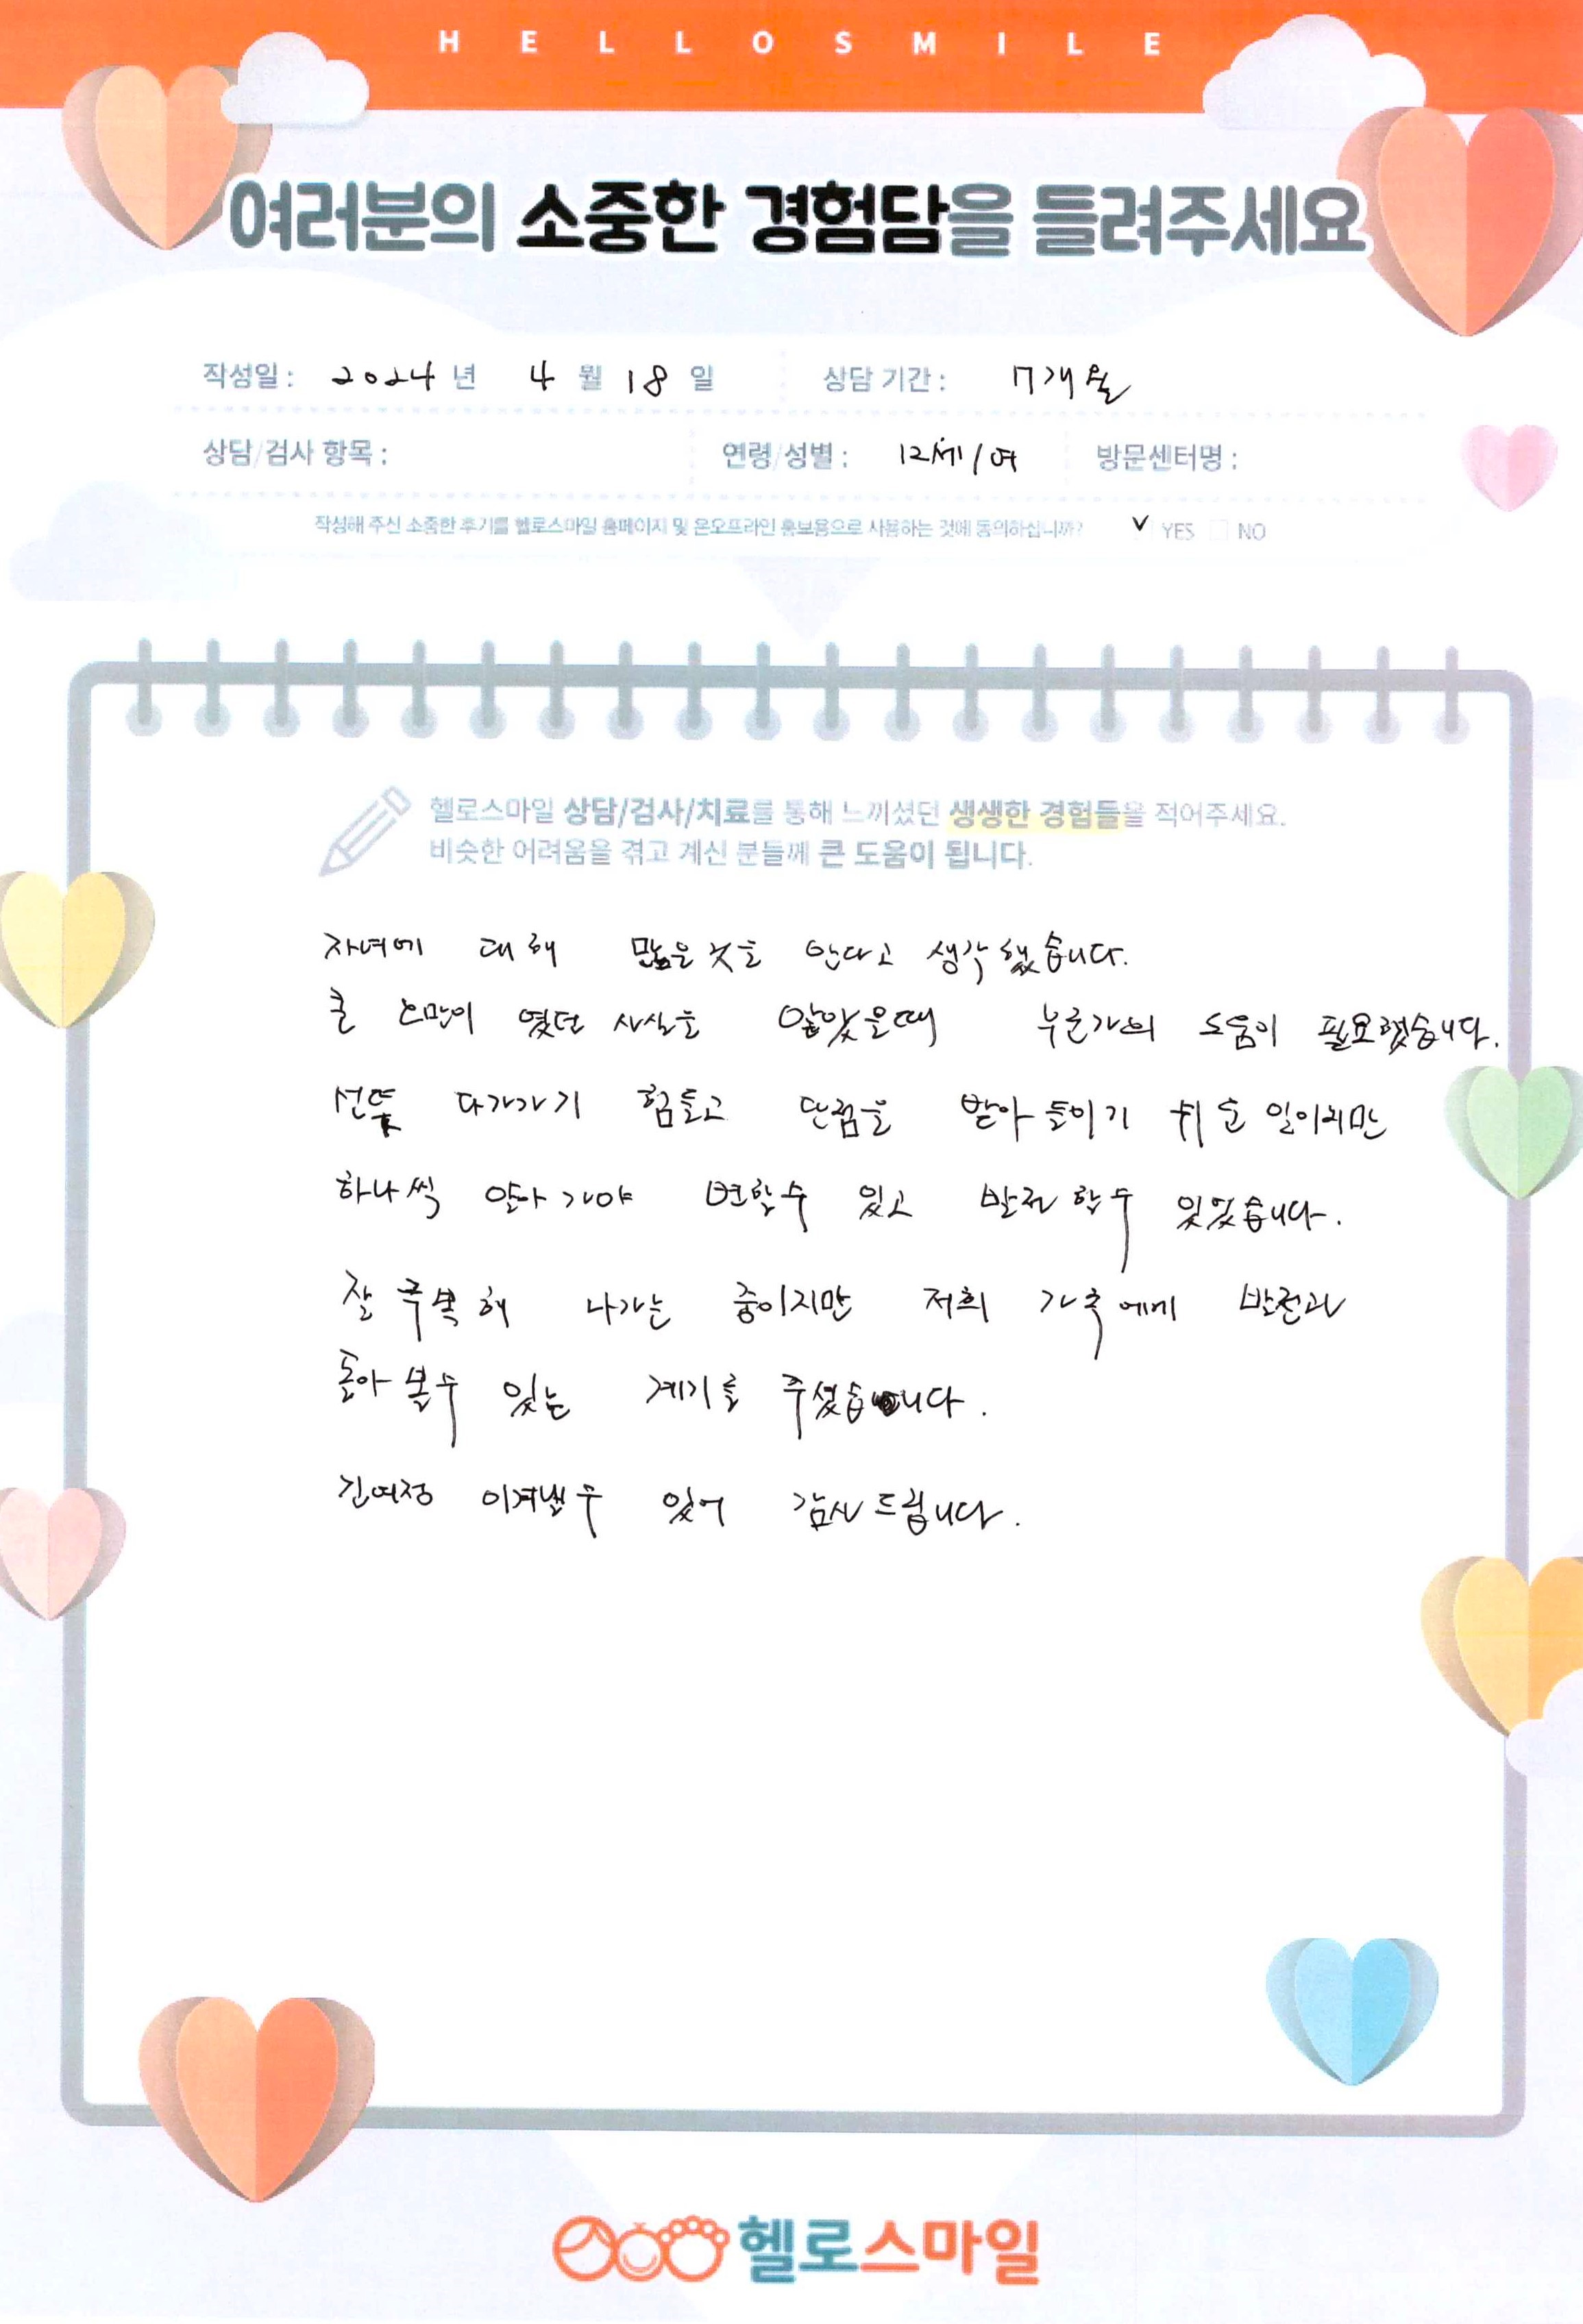 HELLOSMILE
여러분의 소중한 경험담을 들려주세요
작성일 : 2024 년 4 월 18 일 상담 기간 : 7개월
상담/검사 항목 : 연령/성별 : 12세/여 방문센터명 :
작성해 주신 소중한 후기를 헬로스마일 홈페이지 및 온오프라인 홍보용으로 사용하는 것에 동의하십니까? ✓ YES NO
헬로스마일 상담/검사/치료를 통해 느끼셨던 생생한 경험들을 적어주세요.
비슷한 어려움을 겪고 계신 분들께 큰 도움이 됩니다.
자녀에 대해 많은것을 안다고 생각했습니다.
큰 오만이 였던 사실을 알았을때 누군가의 도움이 필요했습니다.
선뜻 다가가기 힘들고 단점을 받아들이기 쉬운 일이지만
하나씩 알아가야 변할수 있고 발전할수 있었습니다.
잘 극복해 나가는 중이지만 저희 가족에게 발전과
돌아볼수 있는 계기를 주셨습니다.
긴여정 이겨낼수 있어 감사드립니다.
헬로스마일